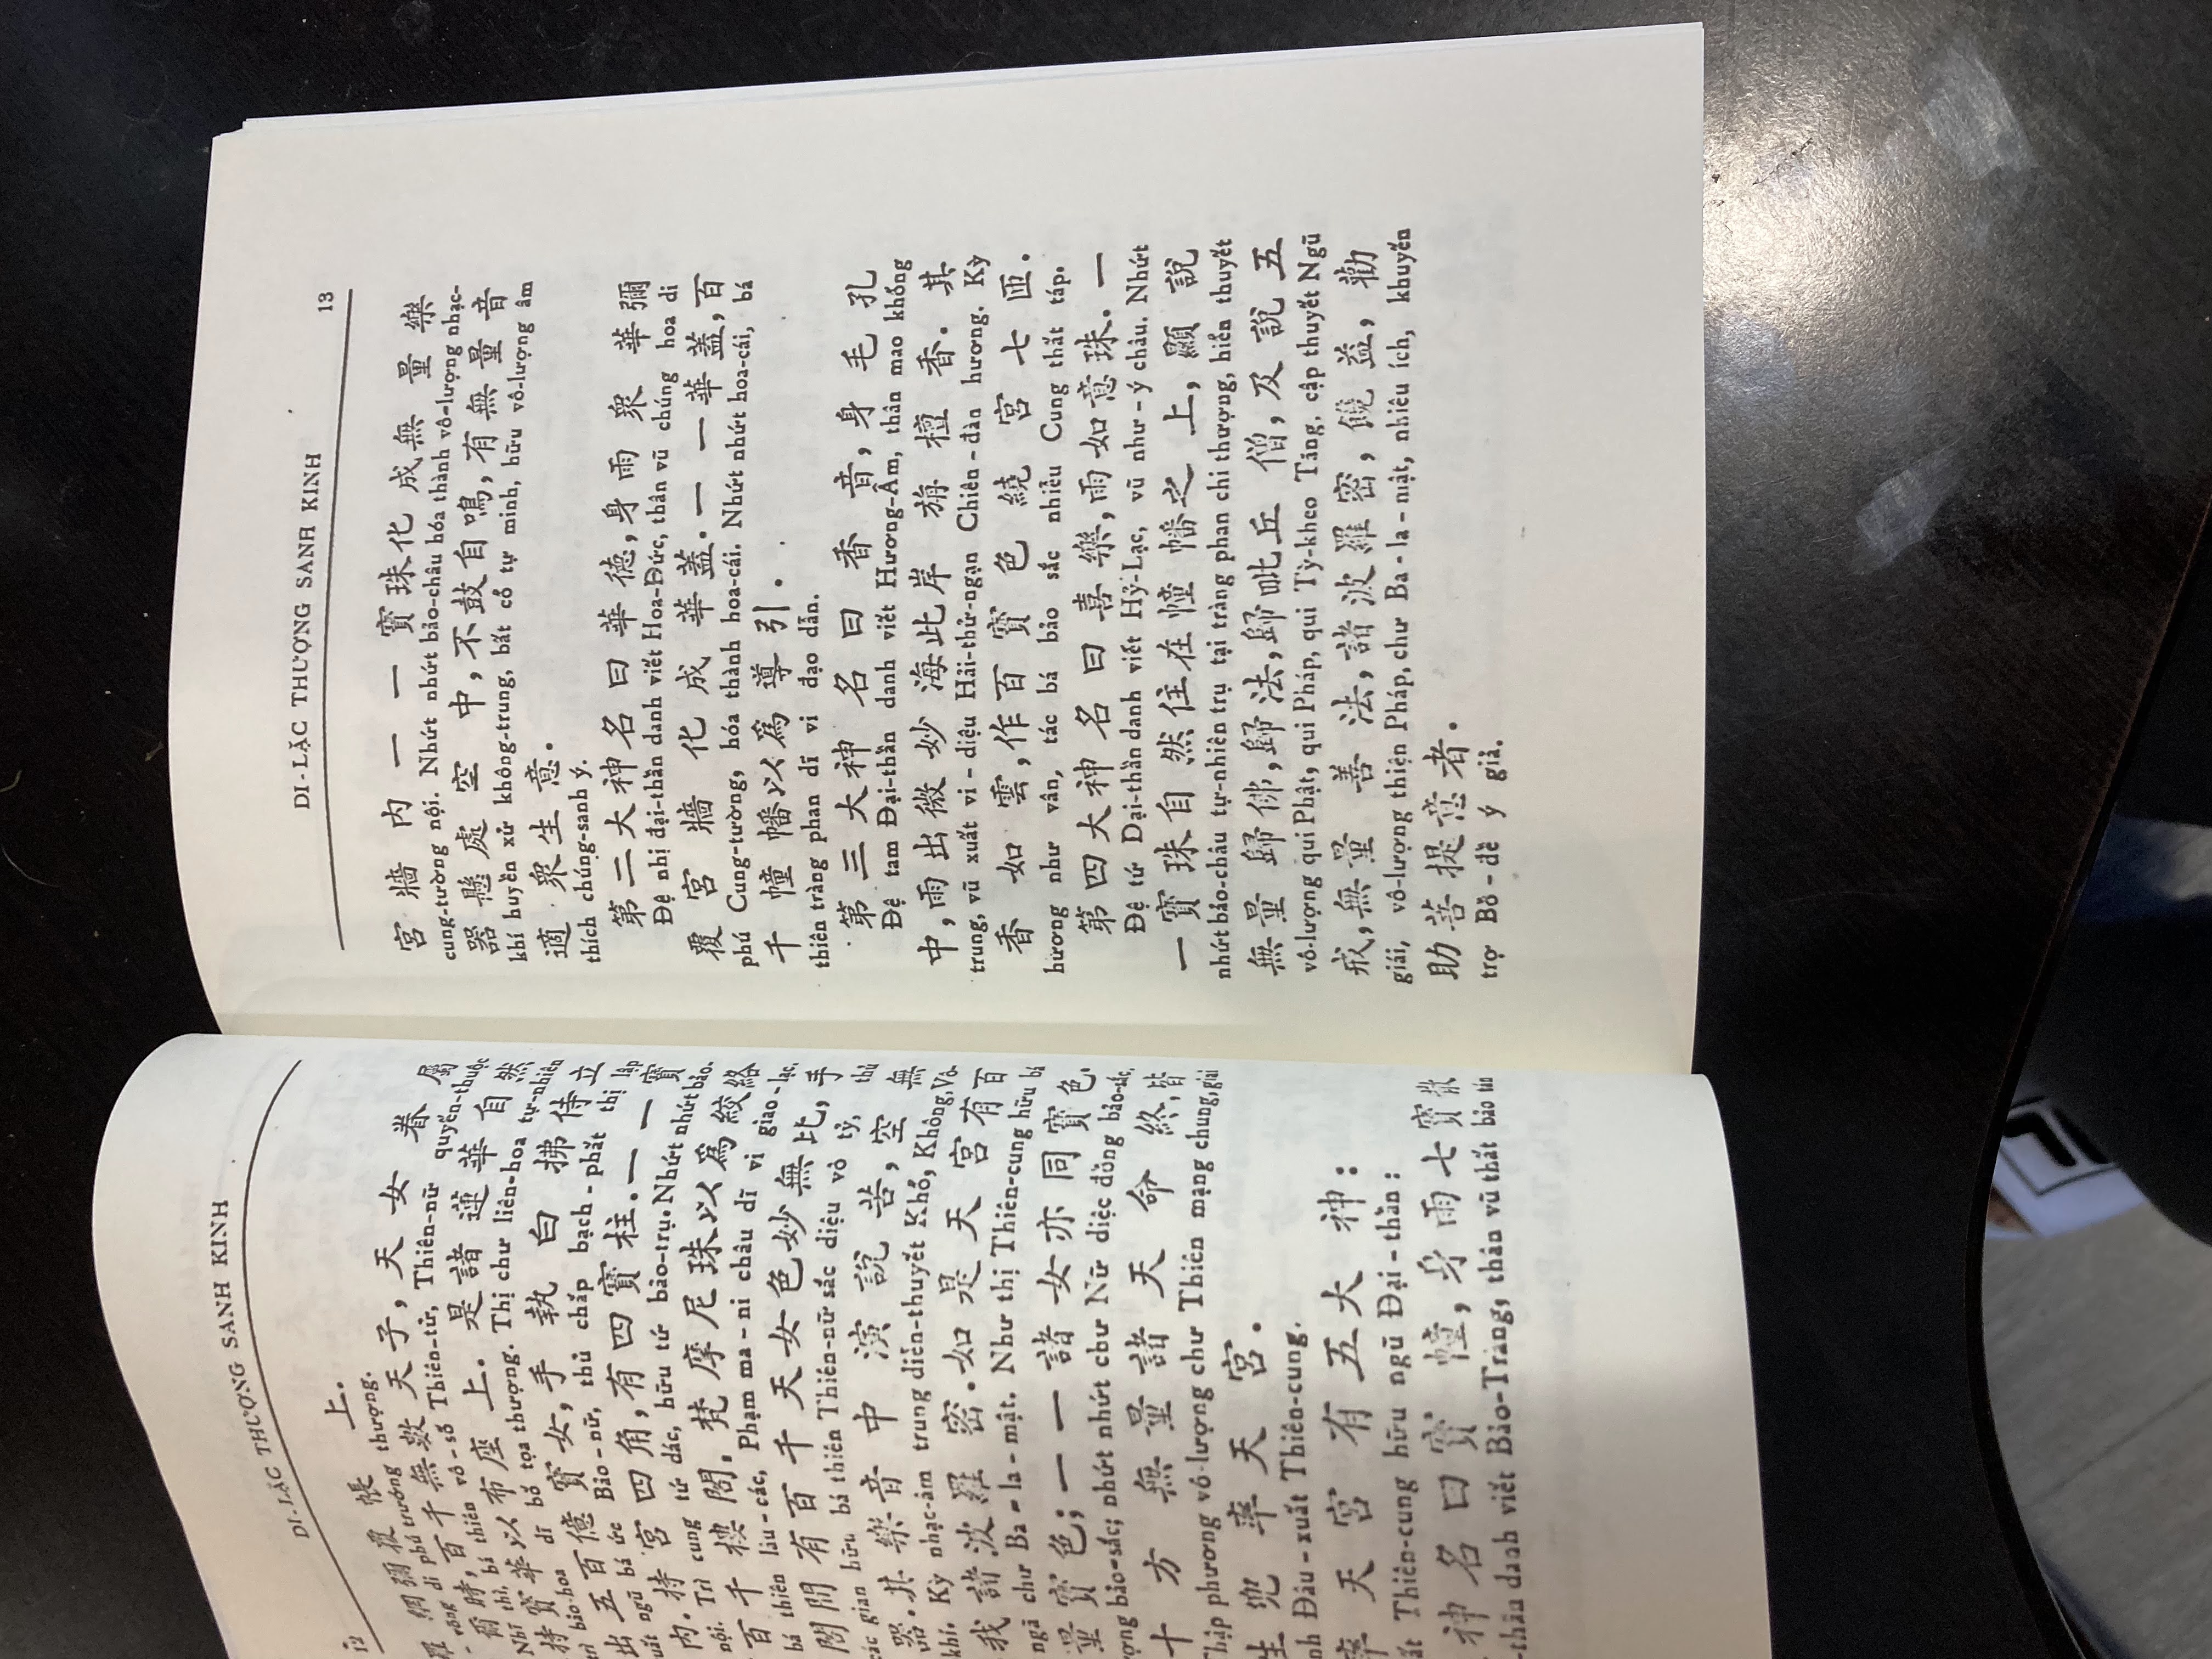 12 DI-LẶC THƯỢNG SANH KINH
羅 網 彌 覆 帳 上.
võng di phú trướng thượng.
爾時,百千無數天子,天女 眷屬
Nhĩ thì, bá thiên vô-số Thiên-tử, Thiên-nữ quyến-thuộc
持寶華以布座上. 是諸蓮華自然
trì bảo-hoa dĩ bố tọa thượng. Thị chư liên-hoa tự-nhiên
出五百億寶女,手執白拂侍立
xuất ngũ bá ức Bảo-nữ, thủ chấp bạch-phất thị lập
內.持宮四角,有四寶柱.一一寶
nội. Trì cung tứ dác, hữu tứ bảo-trụ. Nhứt nhứt bảo.
百千樓閣,梵摩尼珠以為絞絡
bá thiên lâu-các, Phạm ma-ni châu dĩ vi giao-lạc,
閣間有百千天女色妙無比,手
các gian hữu bá thiên Thiên-nữ sắc diệu vô tỷ, thủ
器.其樂音中演說苦,空無
khí. Kỳ nhạc-âm trung diễn-thuyết Khổ, Không, Vô-
我諸波羅密.如是天宮有百
ngã chư Ba-la-mật. Như thị Thiên-cung hữu bá
量寶色;一一諸女亦同寶色.
ượng bảo-sắc; nhứt nhứt chư Nữ diệc đồng bảo-sắc,
十方無量諸天命終,皆
Thập phương vô-lượng chư Thiên mạng chung, giai
生兜率天宮.
nh Đâu-xuất Thiên-cung.
率天宮有五大神:
ất Thiên-cung hữu ngũ Đại-thần:
神名曰寶幢,身雨七寶散
-thần danh viết Bảo-Tràng, thân vũ thất bảo tán
DI-LẶC THƯỢNG SANH KINH 13
宮牆內一一寶珠化成無量樂
cung-tường nội. Nhứt nhứt bảo-châu hóa thành vô-lượng nhạc-
器懸處空中,不鼓自鳴,有無量音
khí huyền xử không-trung, bất cổ tự minh, hữu vô-lượng âm
適眾生意.
thích chúng-sanh ý.
第二大神名曰華德,身雨眾華彌
Đệ nhị đại-thần danh viết Hoa-Đức, thân vũ chúng hoa di
覆宮牆化成華蓋.一一華蓋,百
phú Cung-tường, hóa thành hoa-cái. Nhứt nhứt hoa-cái, bá
千幢幡以為導引.
thiên tràng phan dĩ vi đạo dẫn.
第三大神名曰香音,身毛孔
Đệ tam Đại-thần danh viết Hương-Âm, thân mao khổng
中,雨出微妙海此岸旃檀香.其
trung, vũ xuất vi-diệu Hải-thử-ngạn Chiên-đàn hương. Kỳ
香如雲,作百寶色繞宮七匝.
hương như vân, tác bá bảo sắc nhiễu Cung thất táp.
第四大神名曰喜樂,雨如意珠.一
Đệ tứ Đại-thần danh viết Hỷ-Lạc, vũ như-ý châu. Nhứt
一寶珠自然住在幢幡之上,顯說
nhứt bảo-châu tự-nhiên trụ tại tràng phan chi thượng, hiển thuyết
無量歸佛,歸法,歸毗丘僧,及說五
vô-lượng qui Phật, qui Pháp, qui Tỳ-kheo Tăng, cập thuyết Ngũ
戒,無量善法,諸波羅密,饒益,勸
giái, vô-lượng thiện Pháp, chư Ba-la-mật, nhiêu ích, khuyến
助菩提意者.
trợ Bồ-đề ý giả.